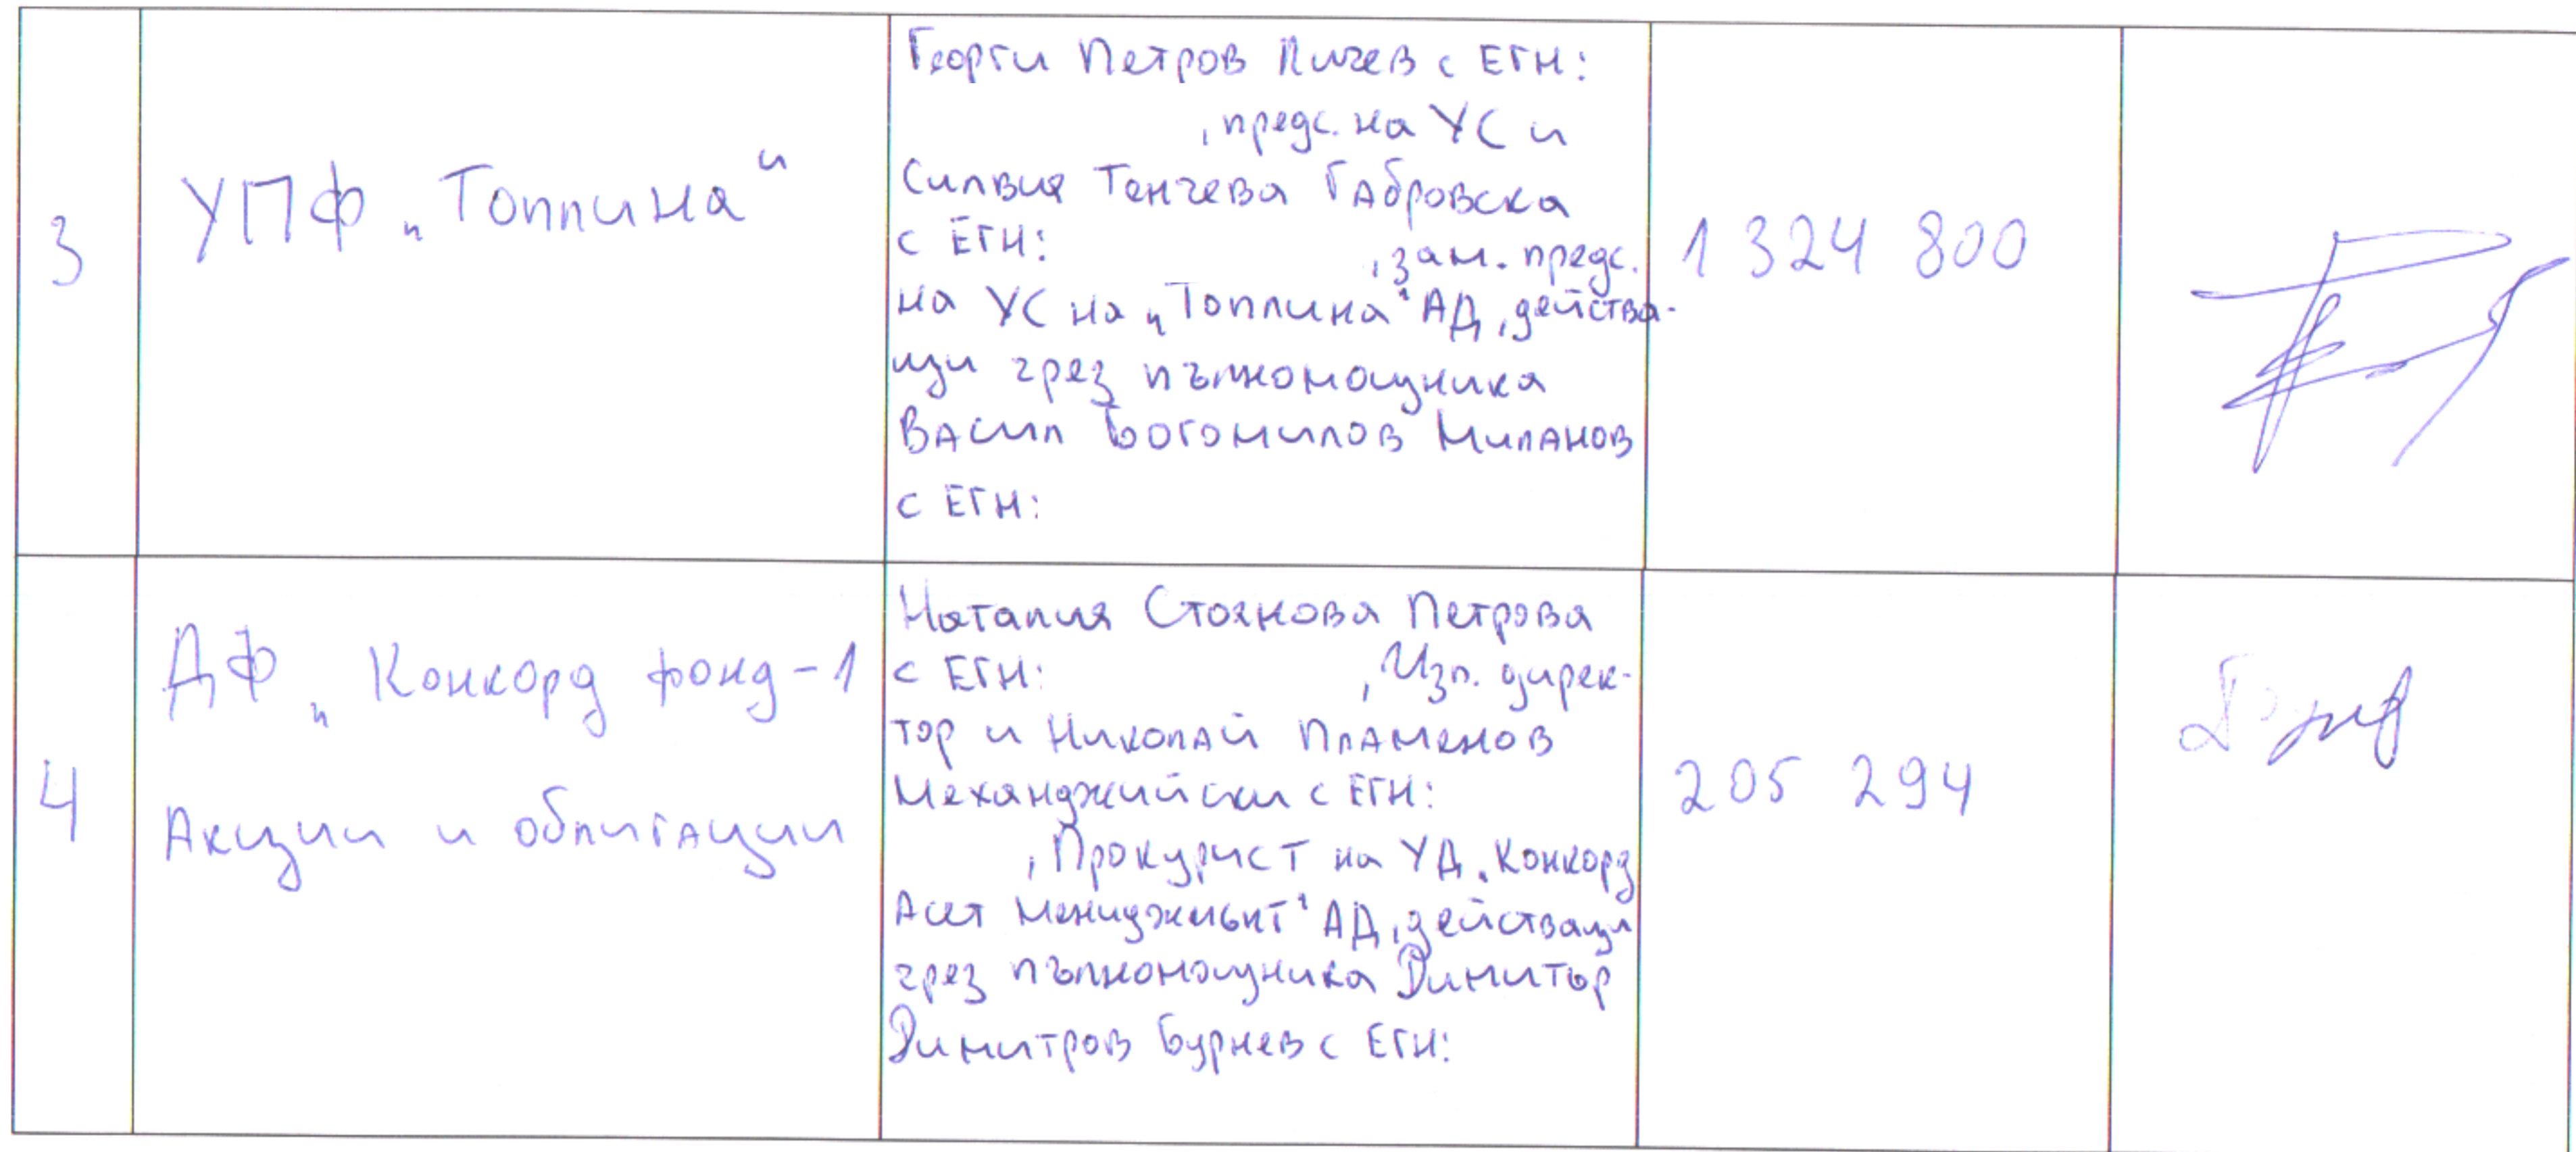 3
УПФ „Топлина“
Георги Петров Личев с ЕГН:
, предс. на УС и
Силвия Тенчева Габровска
с ЕГН: , зам. предс.
на УС на „Топлина“ АД, действа-
щи чрез пълномощника
Васил Богомилов Миланов
с ЕГН:
1 324 800
4
ДФ „Конкорд фонд-1
Акции и облигации
Наталия Стоянова Петрова
с ЕГН: , Изп. дирек-
тор и Николай Пламенов
Механджийски с ЕГН:
, Прокурист на УД „Конкорд
Асет Мениджмънт“ АД, действащи
чрез пълномощника Димитър
Димитров Бурнев с ЕГН:
205 294